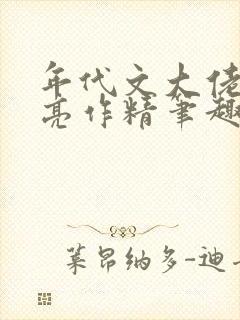 年代文大佬
亮作精笔趣
莱昂纳多-迪